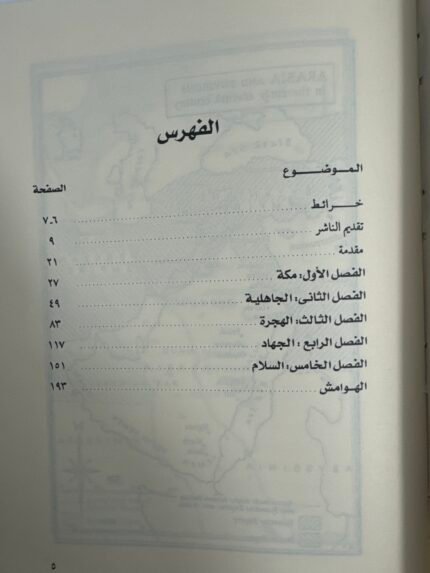 الفهرس
الموضوع الصفحة
خرائط ٦ـ٧
تقديم الناشر ٩
مقدمة ٢١
الفصل الأول: مكة ٢٧
الفصل الثانى: الجاهلية ٤٩
الفصل الثالث: الهجرة ٨٣
الفصل الرابع: الجهاد ١١٧
الفصل الخامس: السلام ١٥١
الهوامش ١٩٣
٥